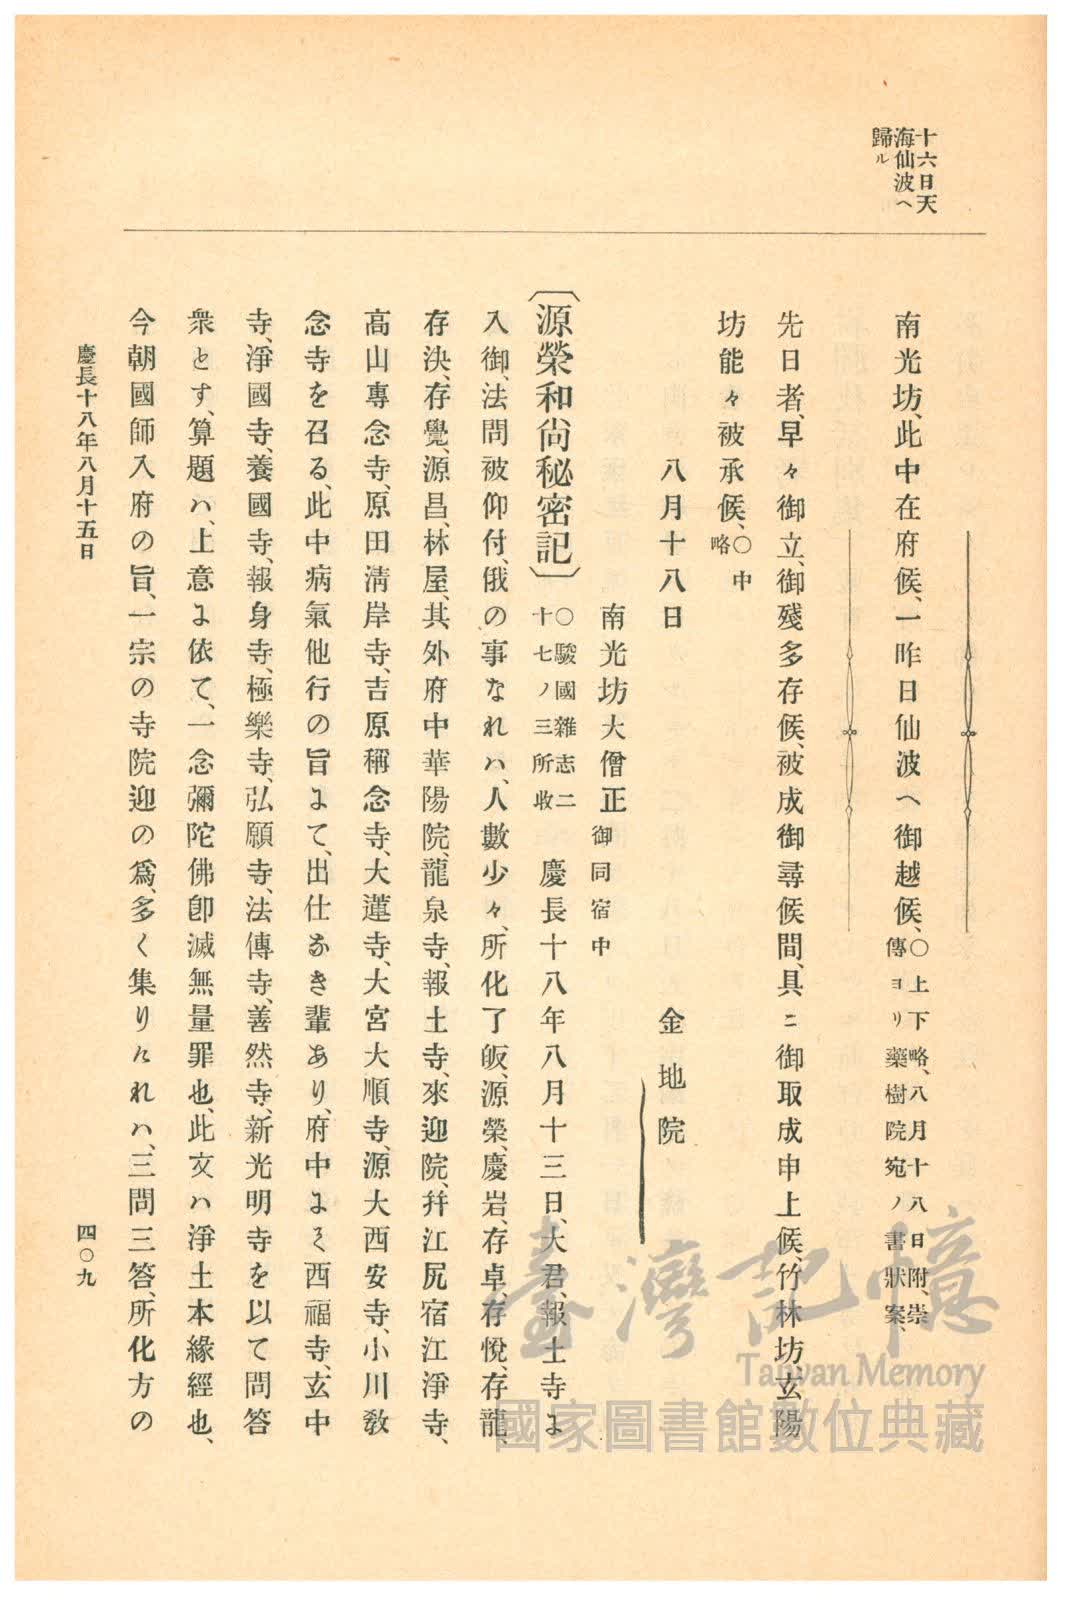 十六日天
海仙波へ
歸ル
南光坊、此中在府候、一昨日仙波へ御越候、○上下略、八月十八日附、崇
傳ヨリ藥樹院宛ノ書狀案、
先日者、早々御立、御殘多存候、被成御尋候間、具ニ御取成申上候、竹林坊、玄陽
坊能々被承候、○中
略
八月十八日
金地院
南光坊大僧正御同宿中
〔源榮和尙秘密記〕○駿國雜志二
十七ノ三所收
慶長十八年八月十三日、大君、報土寺よ
入御、法問被仰付、俄の事なれハ、人數少々、所化了皈、源榮、慶岩、存卓、存悅、存龍、
存決、存覺、源昌、林屋、其外府中華陽院、龍泉寺、報土寺、來迎院、幷江尻宿江淨寺、
高山專念寺、原田淸岸寺、吉原稱念寺、大蓮寺、大宮大順寺、源大西安寺、小川敎
念寺を召る、此中病氣他行の旨よて、出仕なき輩あり、府中よそ西福寺、玄中
寺、淨國寺、養國寺、報身寺、極樂寺、弘願寺、法傳寺、善然寺、新光明寺を以て問答
衆とす、算題ハ、上意よ依て、一念彌陀佛卽滅無量罪也、此文ハ淨土本緣經也、
今朝國師入府の旨、一宗の寺院迎の爲、多く集りけれハ、三問三答、所化方の
慶長十八年八月十五日
四〇九
臺灣記憶
Taiwan Memory
國家圖書館數位典藏